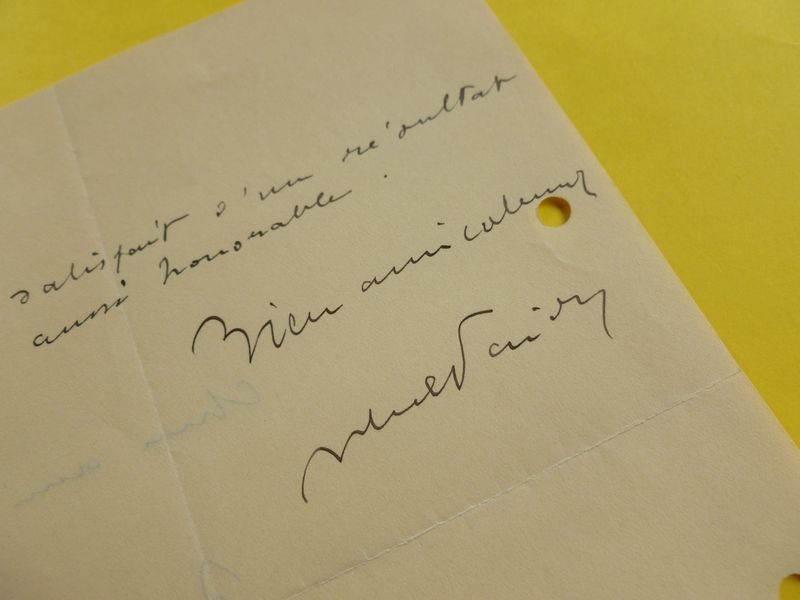 satisfait d'un résultat
aussi honorable.
Bien amicalement